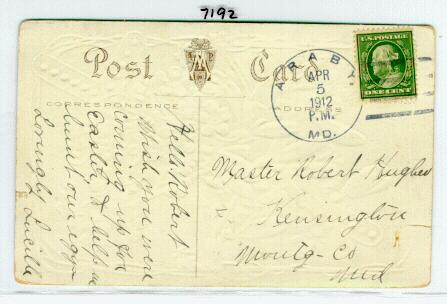 7192
Post Card
CORRESPONDENCE
ADDRESS
ARABY
APR
5
1912
P.M.
MD.
U.S. POSTAGE
ONE CENT
Hello Robert
Wish you were
coming up for
Easter to help us
hunt our eggs
Lovingly Lucille
Master Robert Hughes
Kensington
Montg-Co
Md